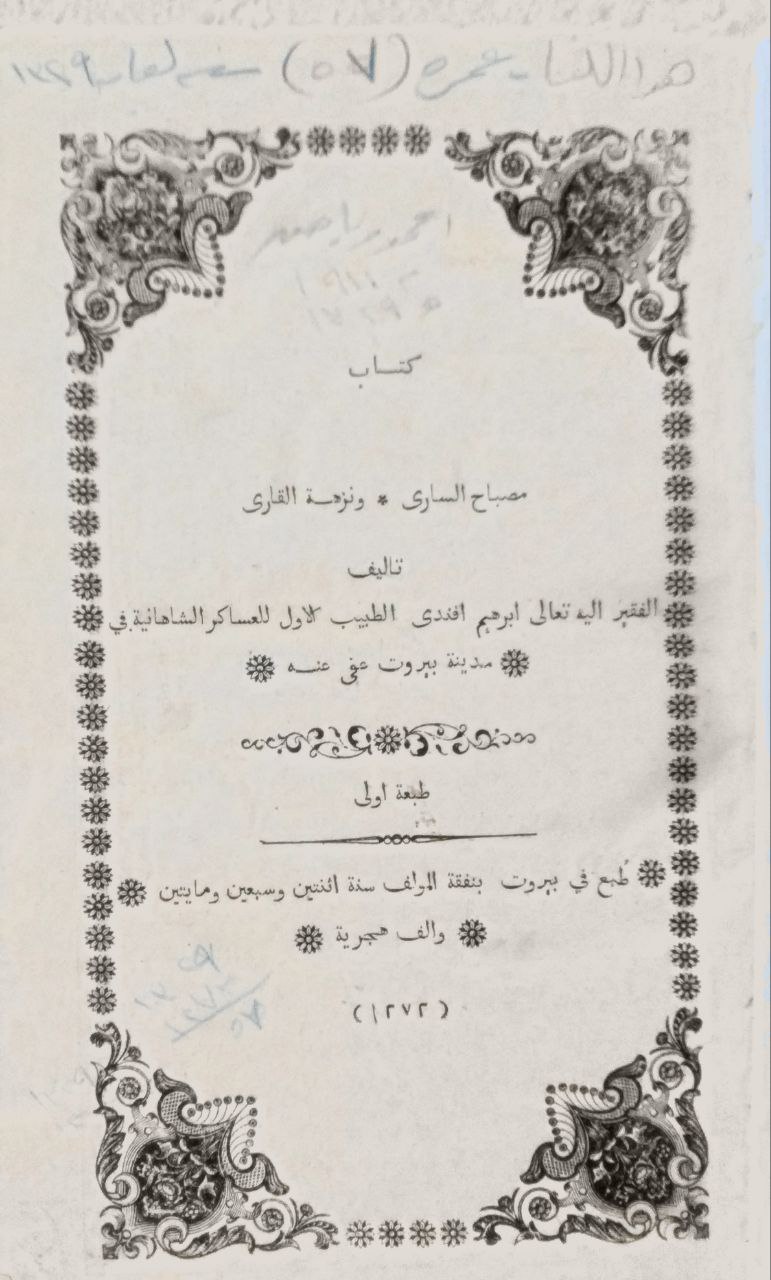 هذا الكتاب عمره (٥٧) سنه لغايه ١٣٢٩
كتاب
مصباح السارى * ونزهة القارى
تاليف
الفقير اليه تعالى ابرهيم افندى الطبيب الاول للعساكر الشاهانية في
مدينة بيروت عفى عنه
طبعة اولى
طُبع في بيروت بنفقة المولف سنة اثنتين وسبعين ومايتين
والف هجرية
(١٢٧٢)